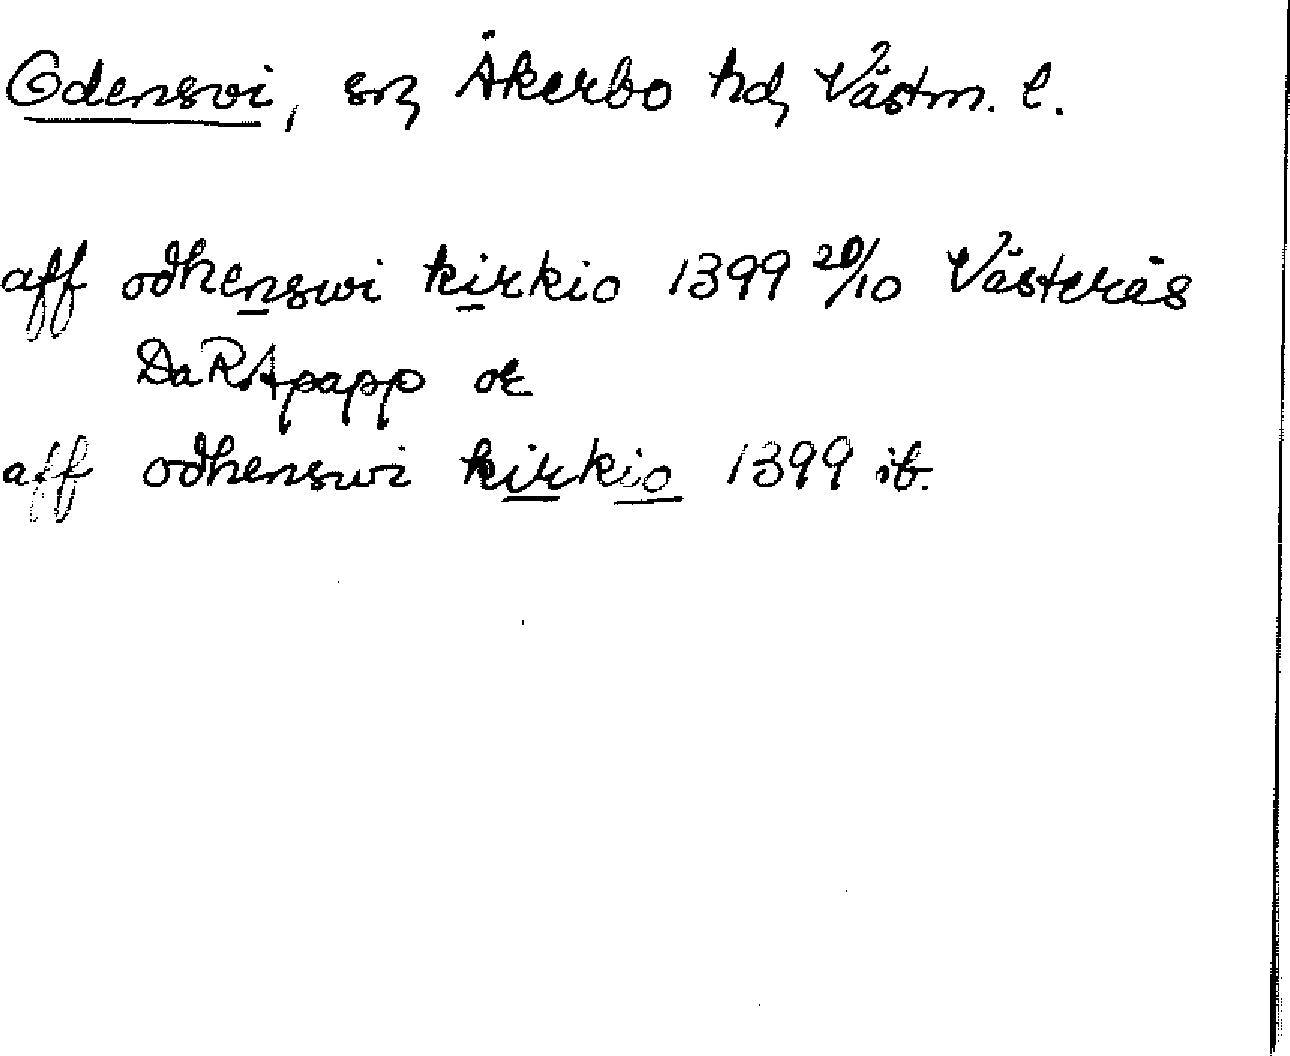 Odensvi, sn, Åkerbo hd, Västm. l.
aff odhenswi kirkio 1399 20/10 Västerås
DaRApapp or
aff odhenswi kirkio 1399 ib.